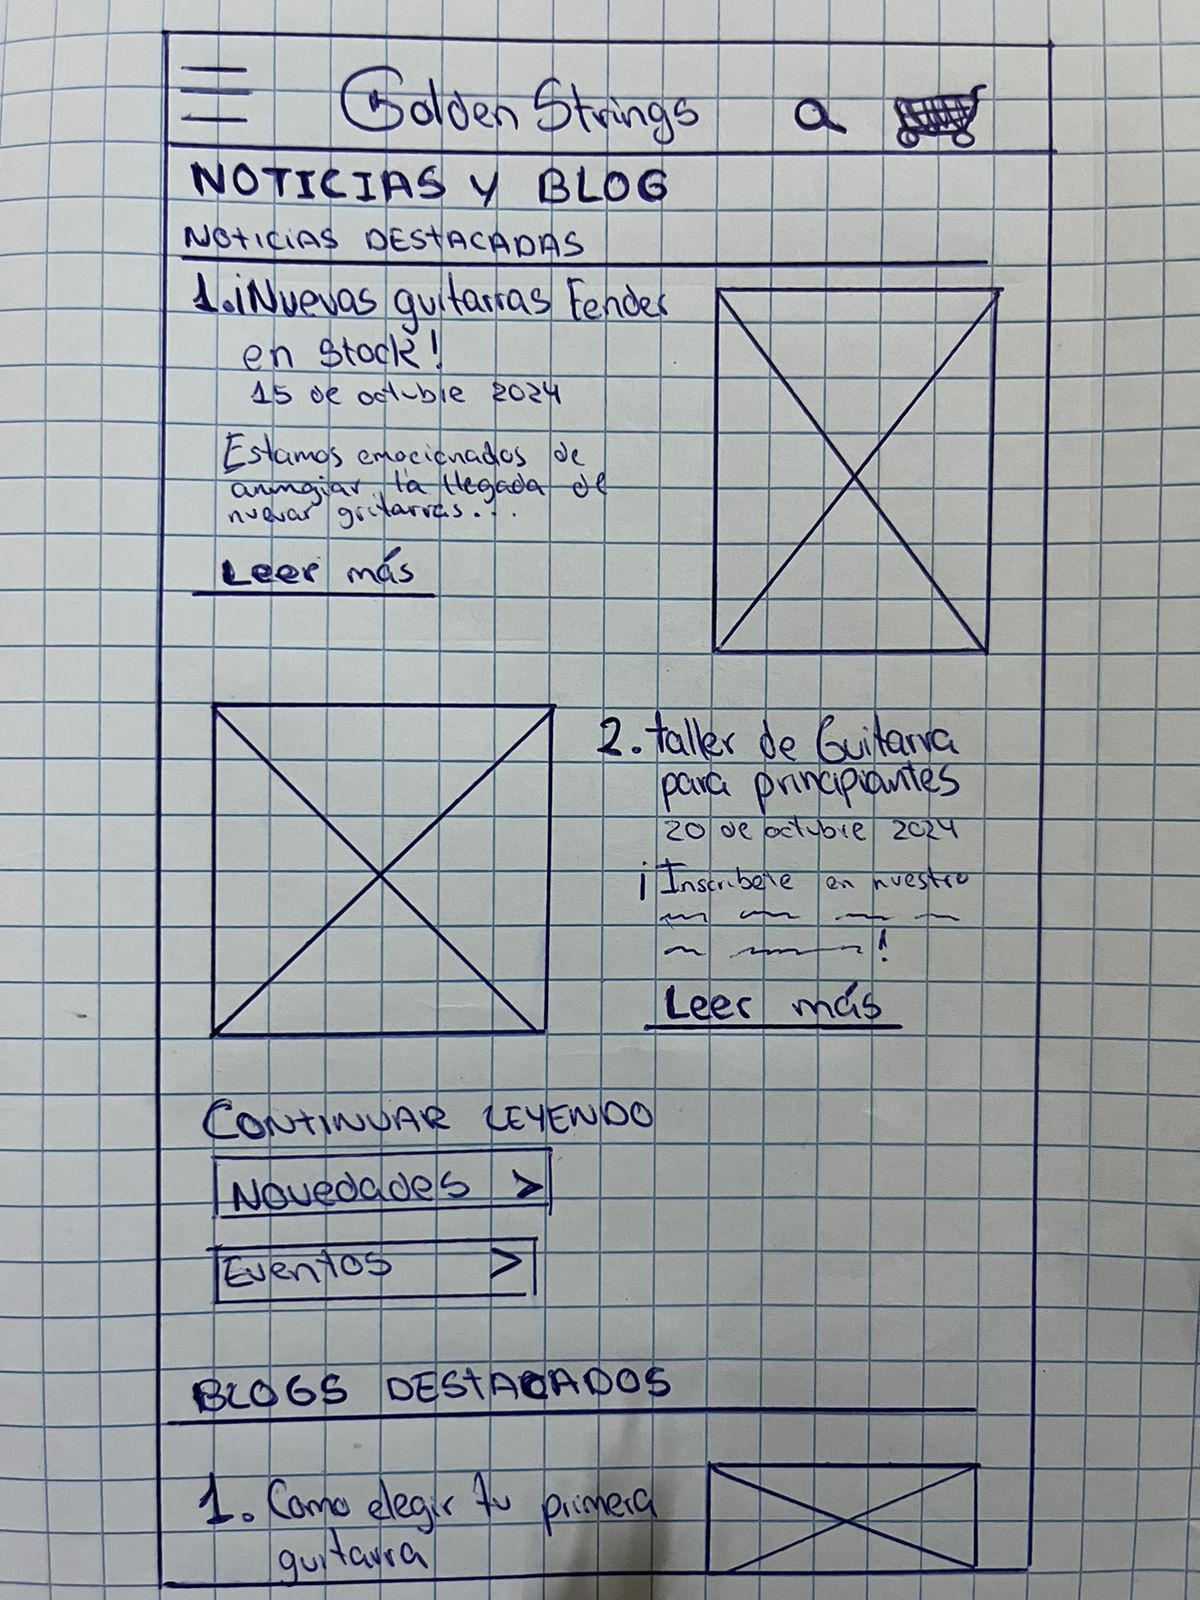 Golden Strings
NOTICIAS Y BLOG
NOTICIAS DESTACADAS
1. ¡Nuevas guitarras Fender
en stock!
15 de octubre 2024
Estamos emocionados de
anunciar la llegada de
nuevas guitarras...
Leer más
2. taller de Guitarra
para principiantes
20 de octubre 2024
¡Inscribete en nuestro
!
Leer más
CONTINUAR LEYENDO
Novedades >
Eventos >
BLOGS DESTACADOS
1. Como elegir tu primera
guitarra